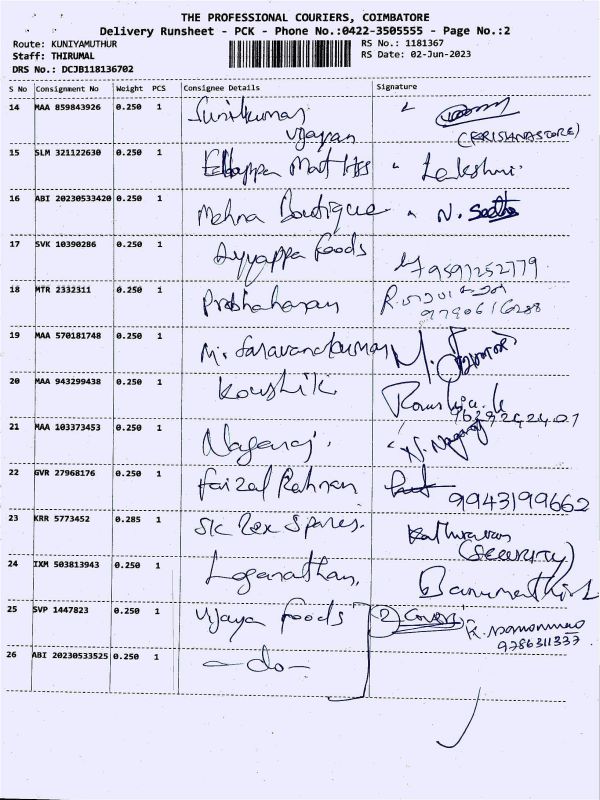 THE PROFESSIONAL COURIERS, COIMBATORE
Delivery Runsheet - PCK - Phone No.:0422-3505555 - Page No.:2
Route: KUNIYAMUTHUR RS No.: 1181367
Staff: THIRUMAL RS Date: 02-Jun-2023
DRS No.: DCJB118136702
S No Consignment No Weight PCS Consignee Details Signature
14 MAA 859843926 0.250 1 Sunilkumar
Vijayan
15 SLM 321122630 0.250 1 Lakshmi.
16 ABI 20230533420 0.250 1 Mehna Boutique N. Seetha
17 SVK 10390286 0.250 1 Ayyappa Foods
9597252779
18 MTR 2332311 0.250 1 Prabhakaran
9790616288
19 MAA 570181748 0.250 1 M. Saravanakumar
20 MAA 943299438 0.250 1 Koushik
21 MAA 103373453 0.250 1 Nagaraj. N. Nagaraj
22 GVR 27968176 0.250 1 Faizal Rahman
9943199662
23 KRR 5773452 0.285 1 Kathiravan
(Security)
24 IXM 503813943 0.250 1 Loganathan,
25 SVP 1447823 0.250 1 Vijaya Foods 2 Covers
9786311337
26 ABI 20230533525 0.250 1 - do -